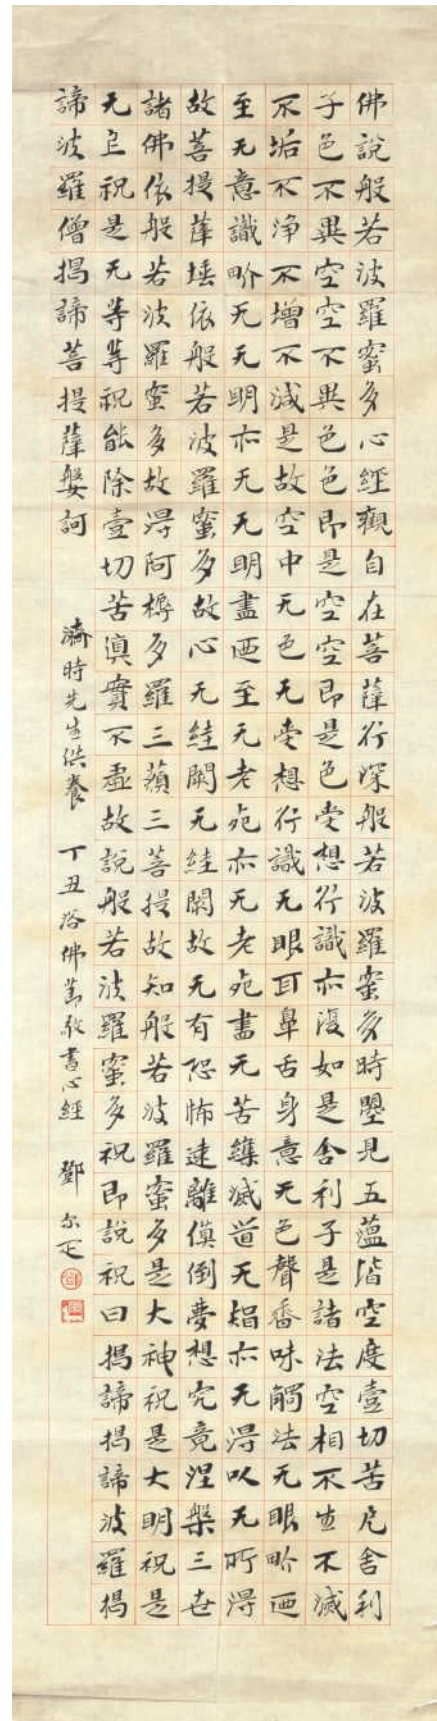 佛說般若波羅蜜多心經觀自在菩薩行深般若波羅蜜多時曌見五蘊皆空度壹切苦厄舍利
子色不異空空不異色色即是空空即是色受想行識亦復如是舍利子是諸法空相不生不滅
不垢不淨不增不減是故空中无色无受想行識无眼耳鼻舌身意无色聲香味觸法无眼畍迺
至无意識畍无无明亦无无明盡迺至无老死亦无老死盡无苦集滅道无智亦无得以无所得
故菩提薩埵依般若波羅蜜多故心无絓閡无絓閡故无有恐怖遠離傎倒夢想究竟涅槃三世
諸佛依般若波羅蜜多故得阿耨多羅三藐三菩提故知般若波羅蜜多是大神祝是大明祝是
无上祝是无等等祝能除壹切苦真實不虛故說般若波羅蜜多祝即說祝曰揭諦揭諦波羅揭
諦波羅僧揭諦菩提薩婆訶
濟時先生供養 丁丑浴佛節敬書心經 鄧尔疋